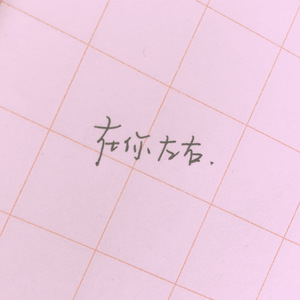 在你左右.